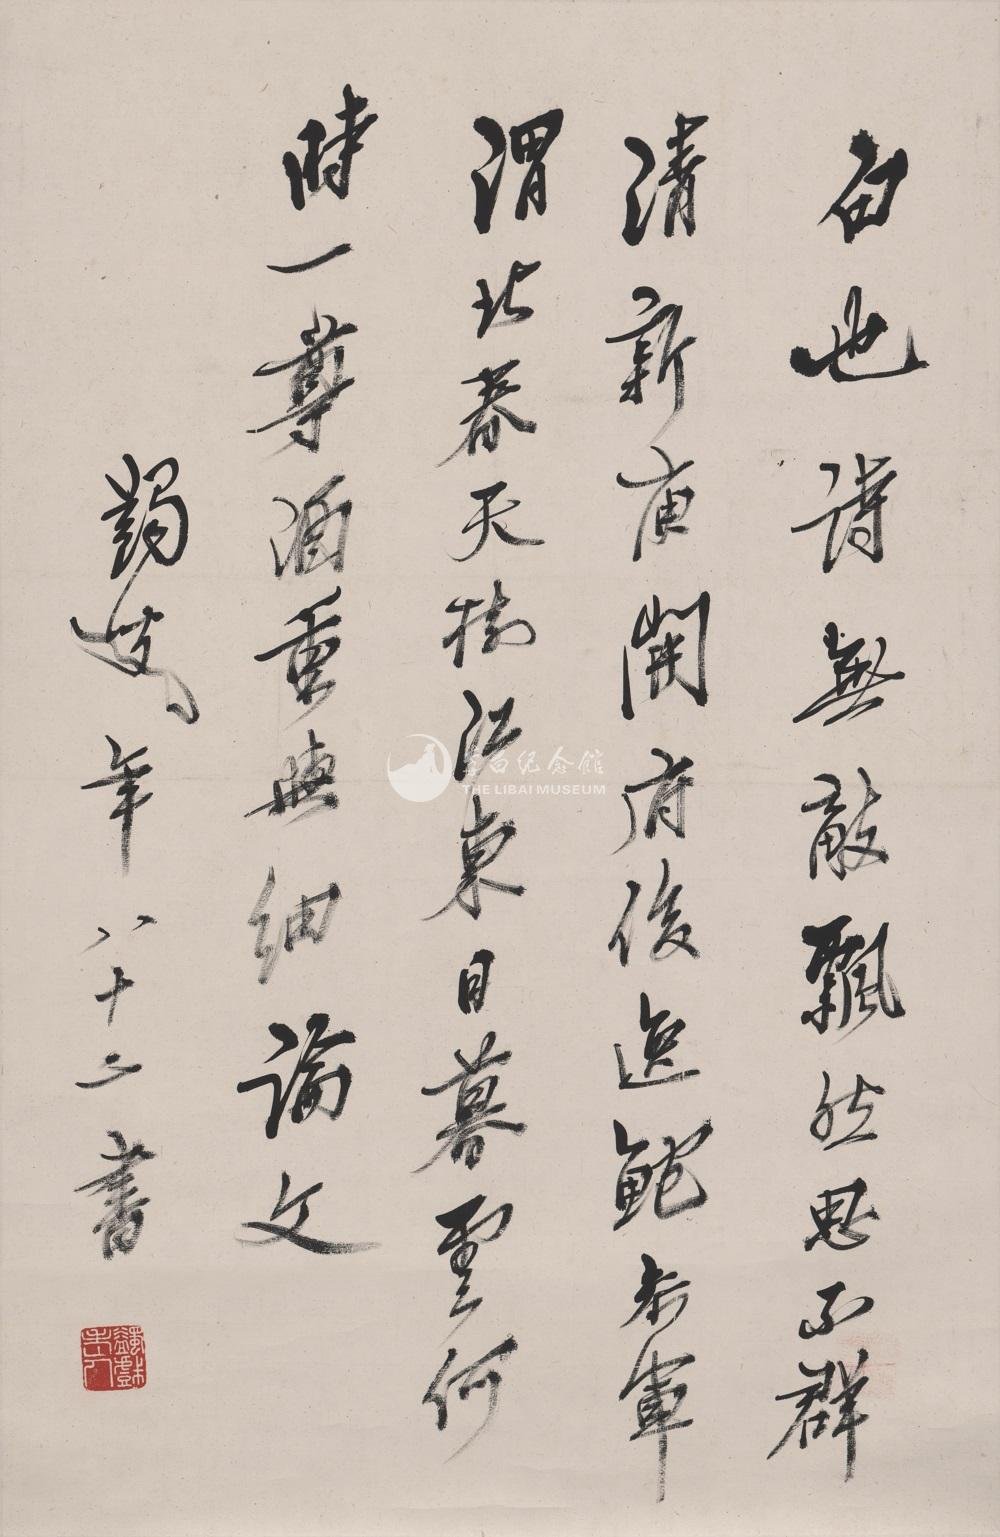 白也詩無敵飄然思不群
清新庾開府俊逸鮑參軍
渭北春天樹江東日暮雲何
時一尊酒重與細論文
蠲叟年八十二書
蠲戲老人
李白纪念館
THE LIBAI MUSEUM